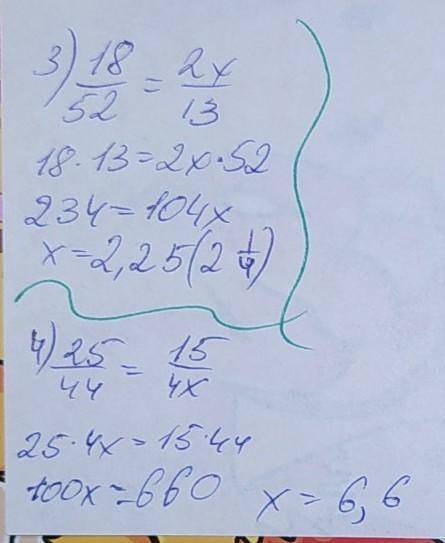 3) 18/52 = 2x/13
18·13=2x·52
234=104x
x=2,25(2 1/4)
4) 25/44 = 15/4x
25·4x=15·44
100x=660 x=6,6